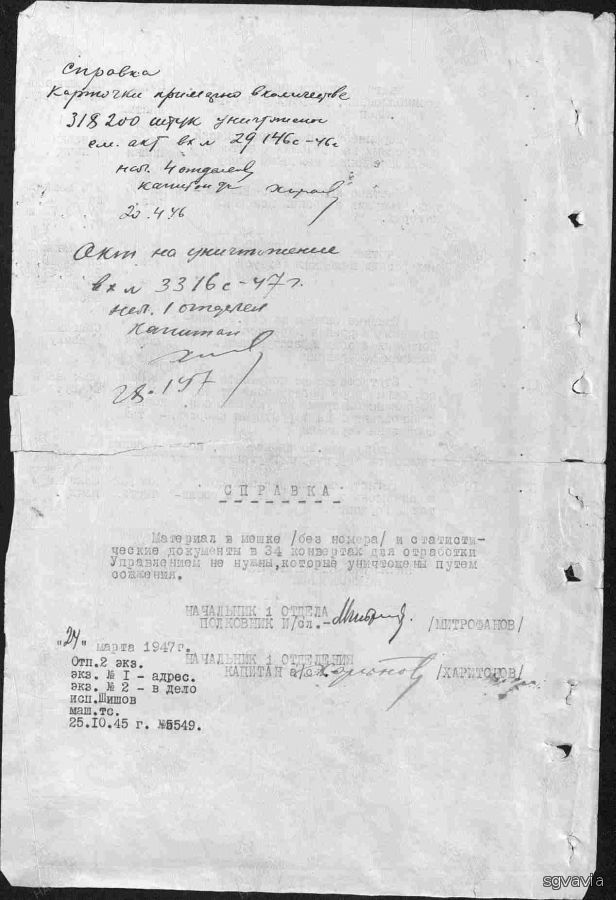 справка
Карточки примерно в количестве
318200 штук уничтожено
см. акт вх № 29146с-46г
нач. 4 отделен
капитан
20.4.46
Акт на уничтожение
вх № 3316с-47г.
нач. 1 отделен
капитан
СПРАВКА
Материал в мешке /без номера/ и статисти-
ческие документы в 34 конвертах для отработки
Управлением не нужны, которые уничтожены путем
сожжения.
НАЧАЛЬНИК 1 ОТДЕЛА
ПОЛКОВНИК И/сл.- /МИТРОФАНОВ/
"24" марта 1947г.
НАЧАЛЬНИК 1 ОТДЕЛЕНИЯ
КАПИТАН /ХАРИТОНОВ/
Отп.2 экз.
экз. № I - адрес.
экз. № 2 - в дело
исп.Шишов
маш.тс.
25.IO.45 г. №5549.
sgvavia